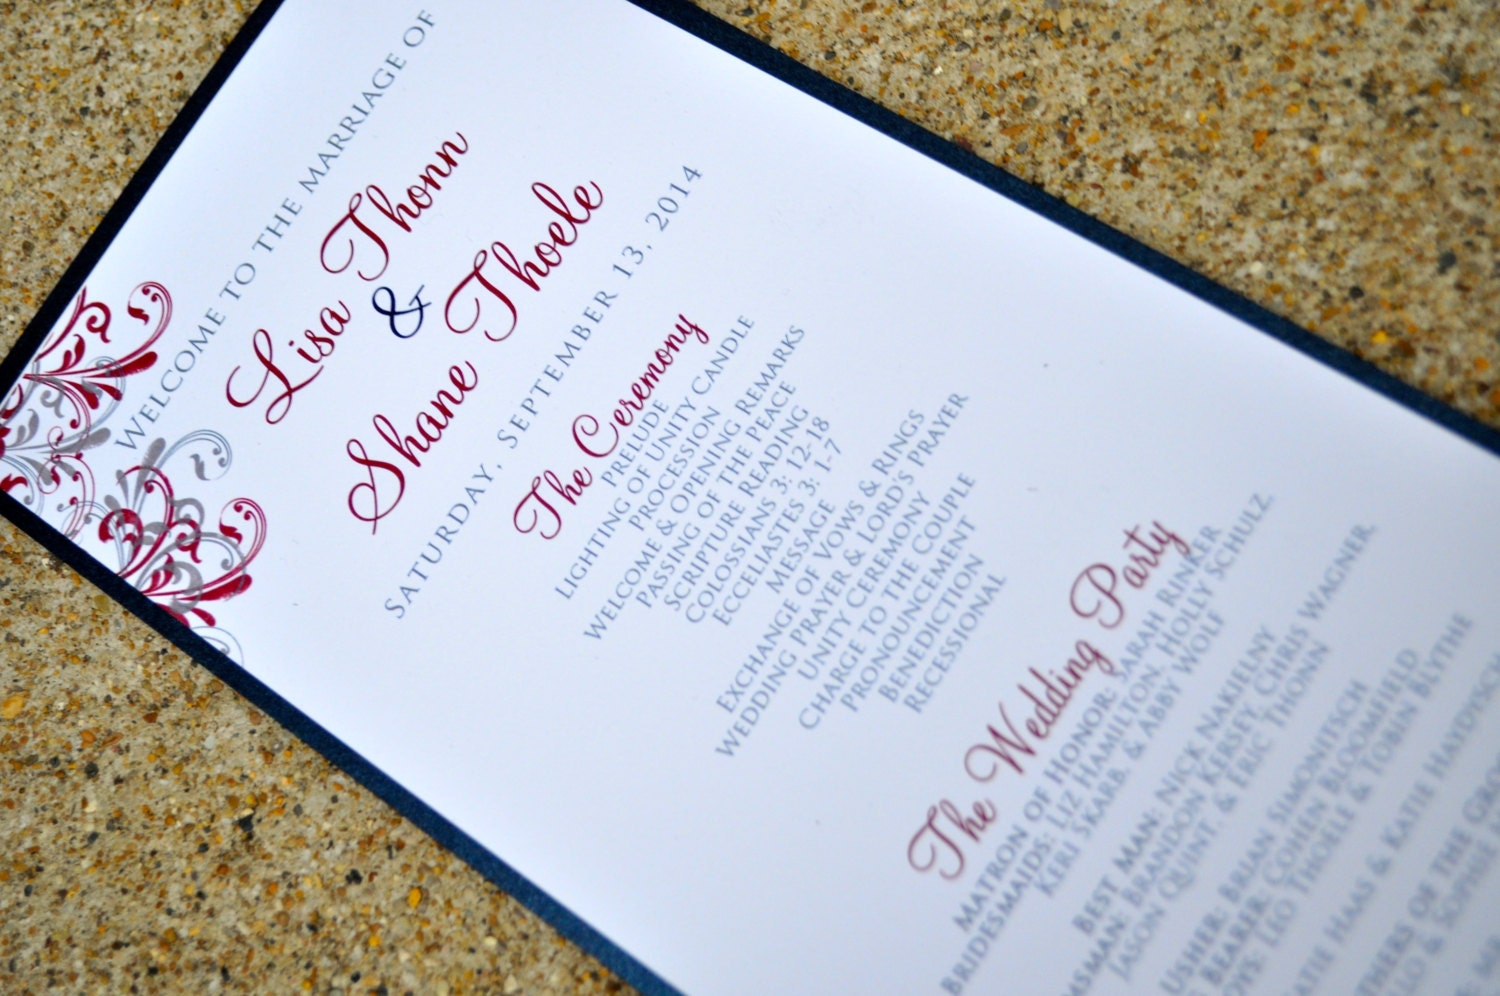 Welcome to the Marriage of
Lisa Thonn
&
Shane Thoele
Saturday, September 13, 2014
The Ceremony
Prelude
Lighting of Unity Candle
Procession
Welcome & Opening Remarks
Passing of the Peace
Scripture Reading
Colossians 3: 12-18
Ecceliastes 3: 1-7
Message
Exchange of Vows & Rings
Wedding Prayer & Lord's Prayer
Unity Ceremony
Charge to the Couple
Pronouncement
Benediction
Recessional
The Wedding Party
Matron of Honor: Sarah Rinker
Bridesmaids: Liz Hamilton, Holly Schulz,
Keri Skarb, & Abby Wolf
Best Man: Nick Nakielny
smen: Brandon Kersey, Chris Wagner,
Jason Quint, & Eric Thonn
Usher: Brian Simonitsch
Bearer: Cohen Bloomfield
Leo Thoele & Tobin Blythe
Haas & Katie
of the
& Sophie